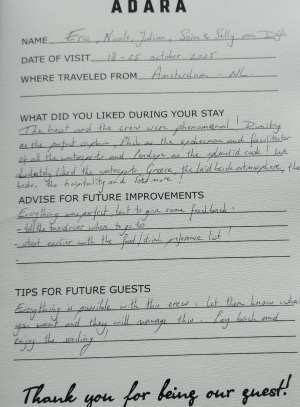 ADARA
NAME Eric, Nicole, Julian, Sven & Sally
DATE OF VISIT 18 - 25 october 2025
WHERE TRAVELED FROM Amsterdam - NL
WHAT DID YOU LIKED DURING YOUR STAY
The boat and the crew were phenomenal! Dimitry
as the perfect captain, as the and facilitator
of all the watersports and as the splendid cook! We
liked the watersports, Greece, the laid back atmosphere, the
the hospitality and more!
ADVISE FOR FUTURE IMPROVEMENTS
Everything was perfect, but to give some feedback:
- tell the taxi driver where to go to
- start earlier with the food/drink preference list!
TIPS FOR FUTURE GUESTS
Everything is possible with this crew. Let them know what
you want and they will manage this. Lay back and
enjoy the sailing
Thank you for being our guest!